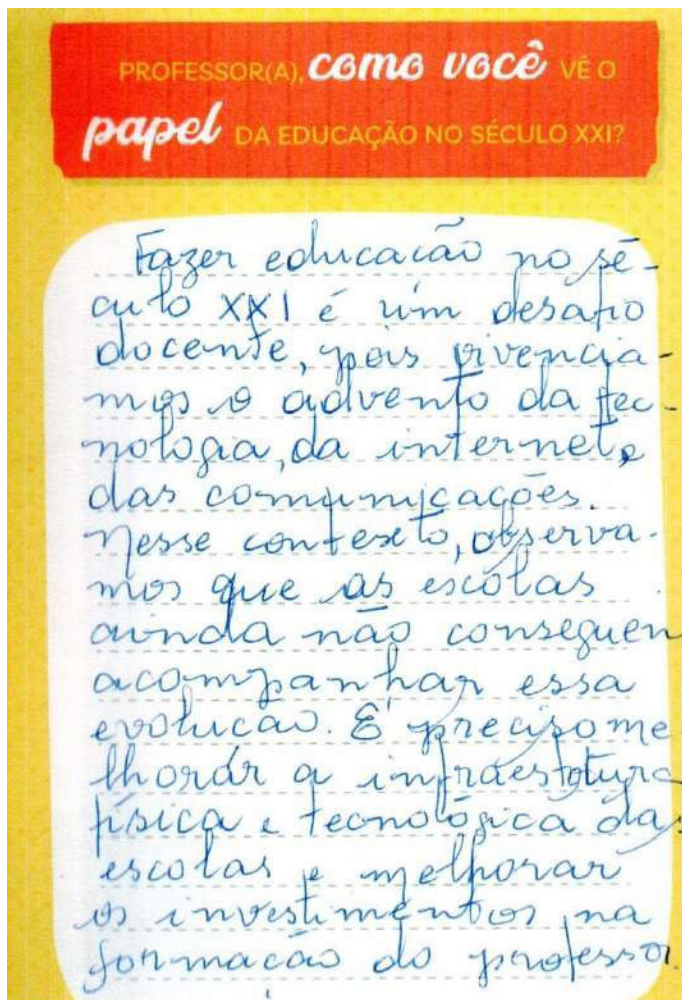 PROFESSOR(A), como você VÊ O
papel DA EDUCAÇÃO NO SÉCULO XXI?
Fazer educação no sé-
culo XXI é um desafio
docente, pois vivencia-
mos o advento da tec-
nologia, da internet e
das comunicações.
Nesse contexto, observa-
mos que as escolas
ainda não conseguem
acompanhar essa
evolução. É preciso me
lhorar a infraestrutura
física e tecnológica das
escolas e melhorar
os investimentos na
formação do professor